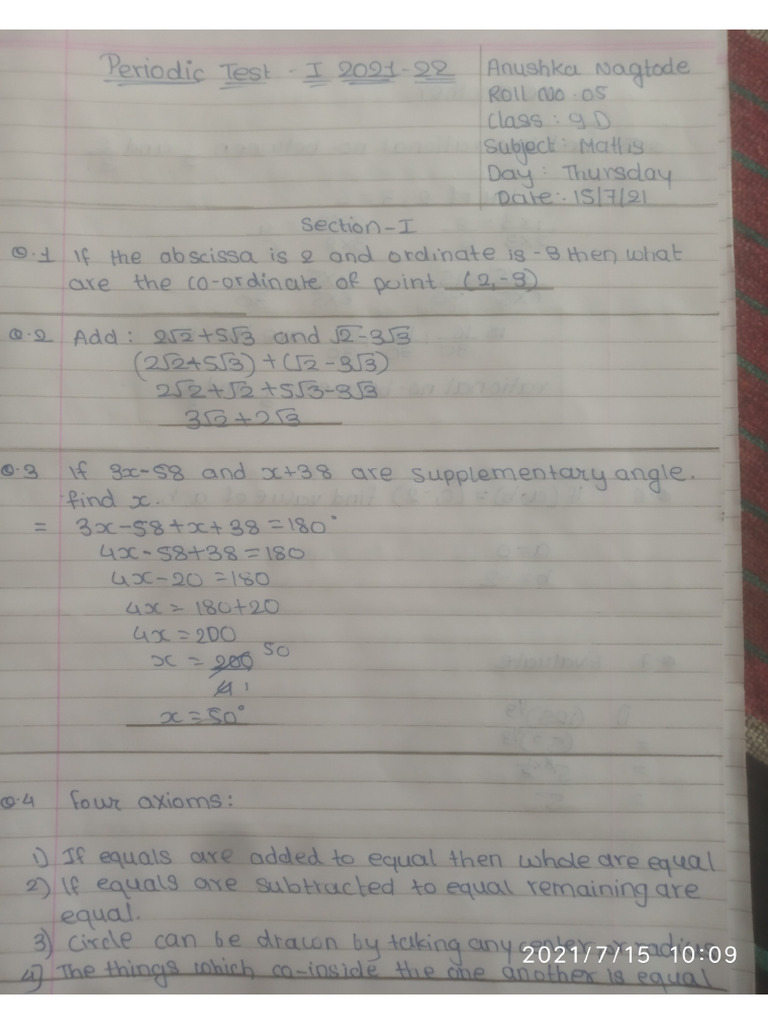 Periodic Test - I 2021-22
Anushka Nagtode
Roll No. 05
Class : 9 D
Subject: Maths
Day : Thursday
Date:- 15/7/21
Section-I
Q.1 If the abscissa is 2 and ordinate is -3 then, what
are the co-ordinate of point (2,-3)
Q.2 Add: 2√2+5√3 and √2-3√3
(2√2+5√3)+(√2-3√3)
2√2+√2+5√3-3√3
3√2+2√3
Q.3 If 3x-58 and x+38 are supplementary angle.
find x.
= 3x-58+x+38=180°
4x-58+38=180
4x-20=180
4x=180+20
4x=200
x=200 50
4 1
x=50°
Q.4 four axioms:
1) If equals are added to equal then whole are equal
2) If equals are subtracted to equal remaining are
equal.
3) Circle can be drawn by taking any center or radius
4) The things which co-inside the one another is equal
2021/7/15 10:09